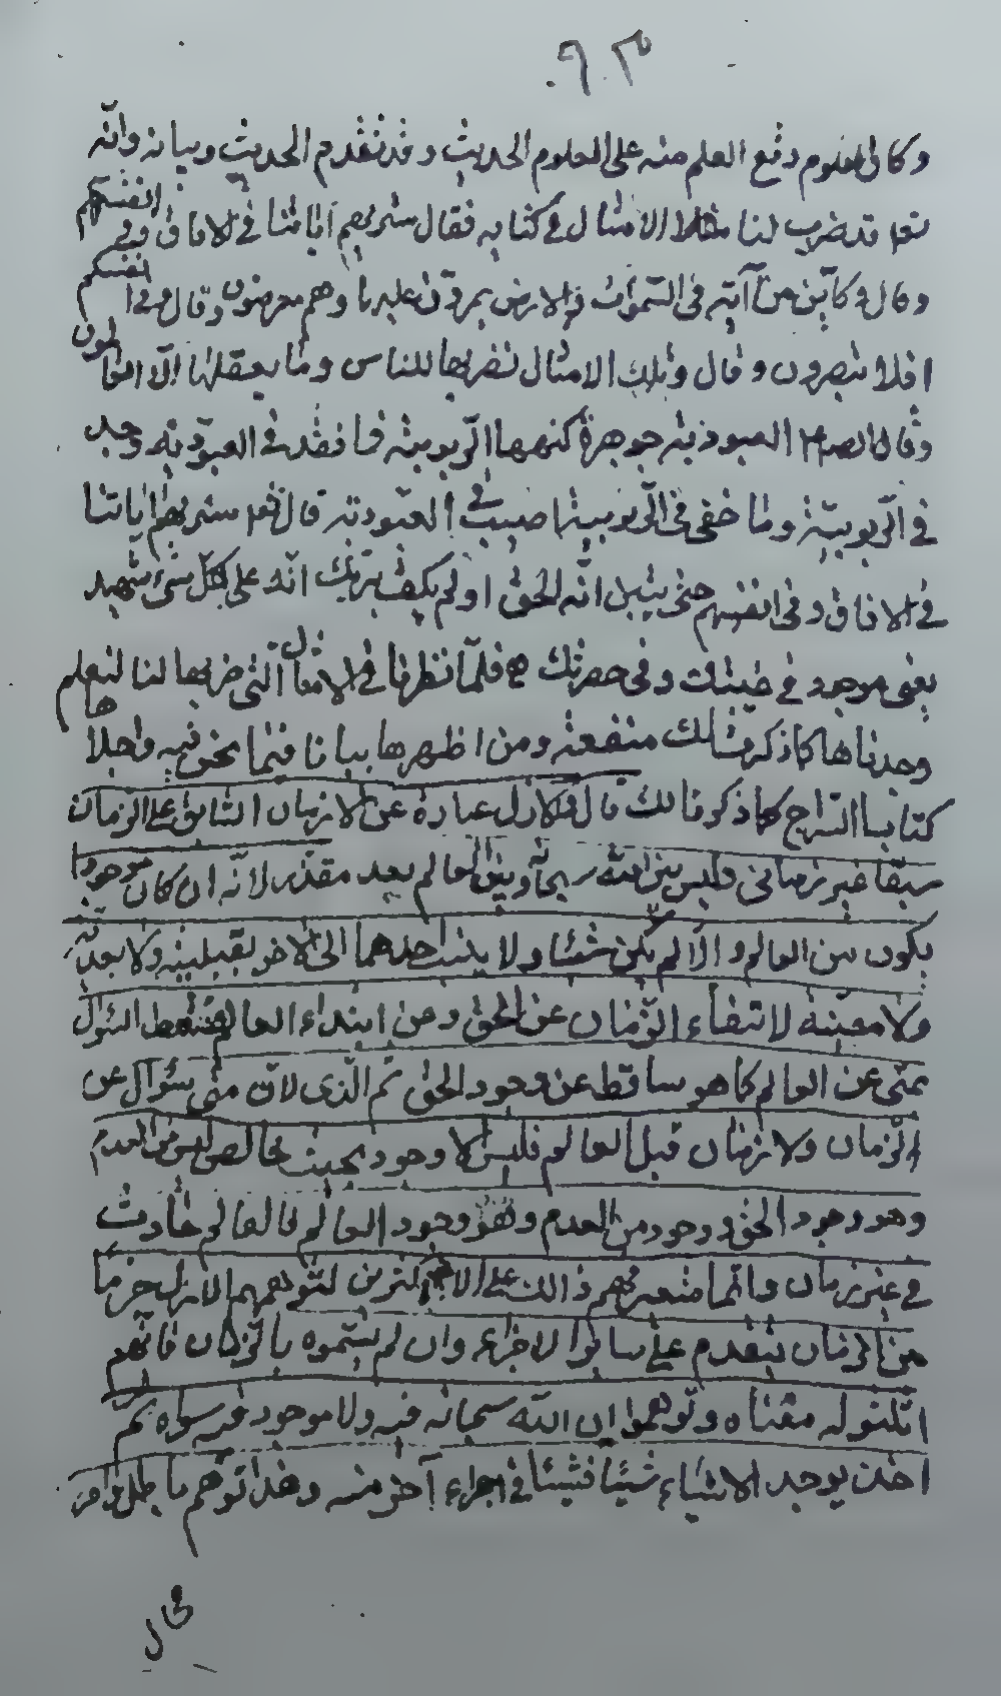 ٩٠٣
وكان المعلوم وقع العلم منه على المعلوم الحديث وقد تقدم الحديث وبيانه وانّه
تعا قد ضرب لنا الامثال في كتابه فقال سنريهم اياتنا في الافاق وفي انفسهم
وقال وكايّن من آية في السّموات والارض يمرّون عليها وهم معرضون وقال وفي انفسكم
افلا تبصرون وقال وتلك الامثال نضربها للناس وما يعقلها الّا العالمون
وقال الصم العبوديّة جوهرة كنهها الرّبوبيّة فما فقد في العبوديّة وجد
في الرّبوبيّة وما خفى في الرّبوبيّة اصيب في العبوديّة قال تعا سنريهم اياتنا
في الافاق وفي انفسهم حتى يتبين انّه الحق اولم يكف بربّك انّه على كلّ شيء شهيد
يعنى موجود في غيبتك وفي حضرتك ه فلمّا نظرنا في الامثال التى ضربها لنا لنعلمها
وجدناها كما ذكرت لك منفعته ومن اظهرها بيانا فيما نحن فيه واجلا
كتابيا السّراج كما ذكرنا لك قال فالازل عبارة عن الازمان السّابق على الزمان
سبقا غير زمانى وليس بين الله سبحانه وبين العالم بعد مقدّر لانّه ان كان موجودا
يكون من العالم والّا لم يكن شيئا ولا ينسب احدهما الى الاخر بقبليّة ولا بعديّة
ولا معيّة لانتفاء الزّمان عن الحق وعن ابتداء العالم فسقط السّؤال
بمتى عن العالم كما هو ساقط عن وجود الحق ثم الّذى لان متى سؤال عن
الزّمان ولا زمان قبل العالم فليس الا وجود بحيث خالص ليس من العدم
وهو وجود الحق ووجود من العدم وهو وجود العالم فالعالم حادث
في غير زمان وانّما يتعسر فهم ذالك على الاكثرين لتوهمهم الازل جزءا
من الزمان يتقدم على سائر الاجزاء وان لم يسمّوه بالزمان فانّهم
اثبتوا له معناه وتوهموا ان الله سبحانه فيه ولا موجود فيه سواه ثم
اخذ يوجد الاشياء شيئا فشيئا في اجزاء آخر منه وهذا توهم باطل وامر
محال